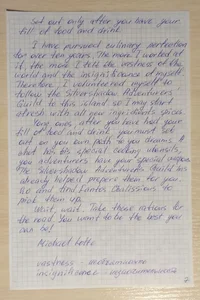 Set out only after you have your
fill of food and drink.
I have pursued culinary perfection
for over ten years. The more I worked at
it, the more I felt the vastness of the
world and the insignificance of myself.
Therefore, I volunteered myself to
follow the Silvershadow Adventurers
Guild to this island so I may start
afresh with all new ingredients spices
Young ones, after you have had your
fill of food and drink, you must set
out on your own path to you dreams. A
chef has his special cooking utensils,
you adventurers have your special weapons
The Silvershadow Adventurers Guild has
already helped prepare them for you.
Go and find Santos
to pick
them up.
Wait, wait. Take these rations for
the road. You want to be the best you
can be!
Michael
vastness -
insignificance -